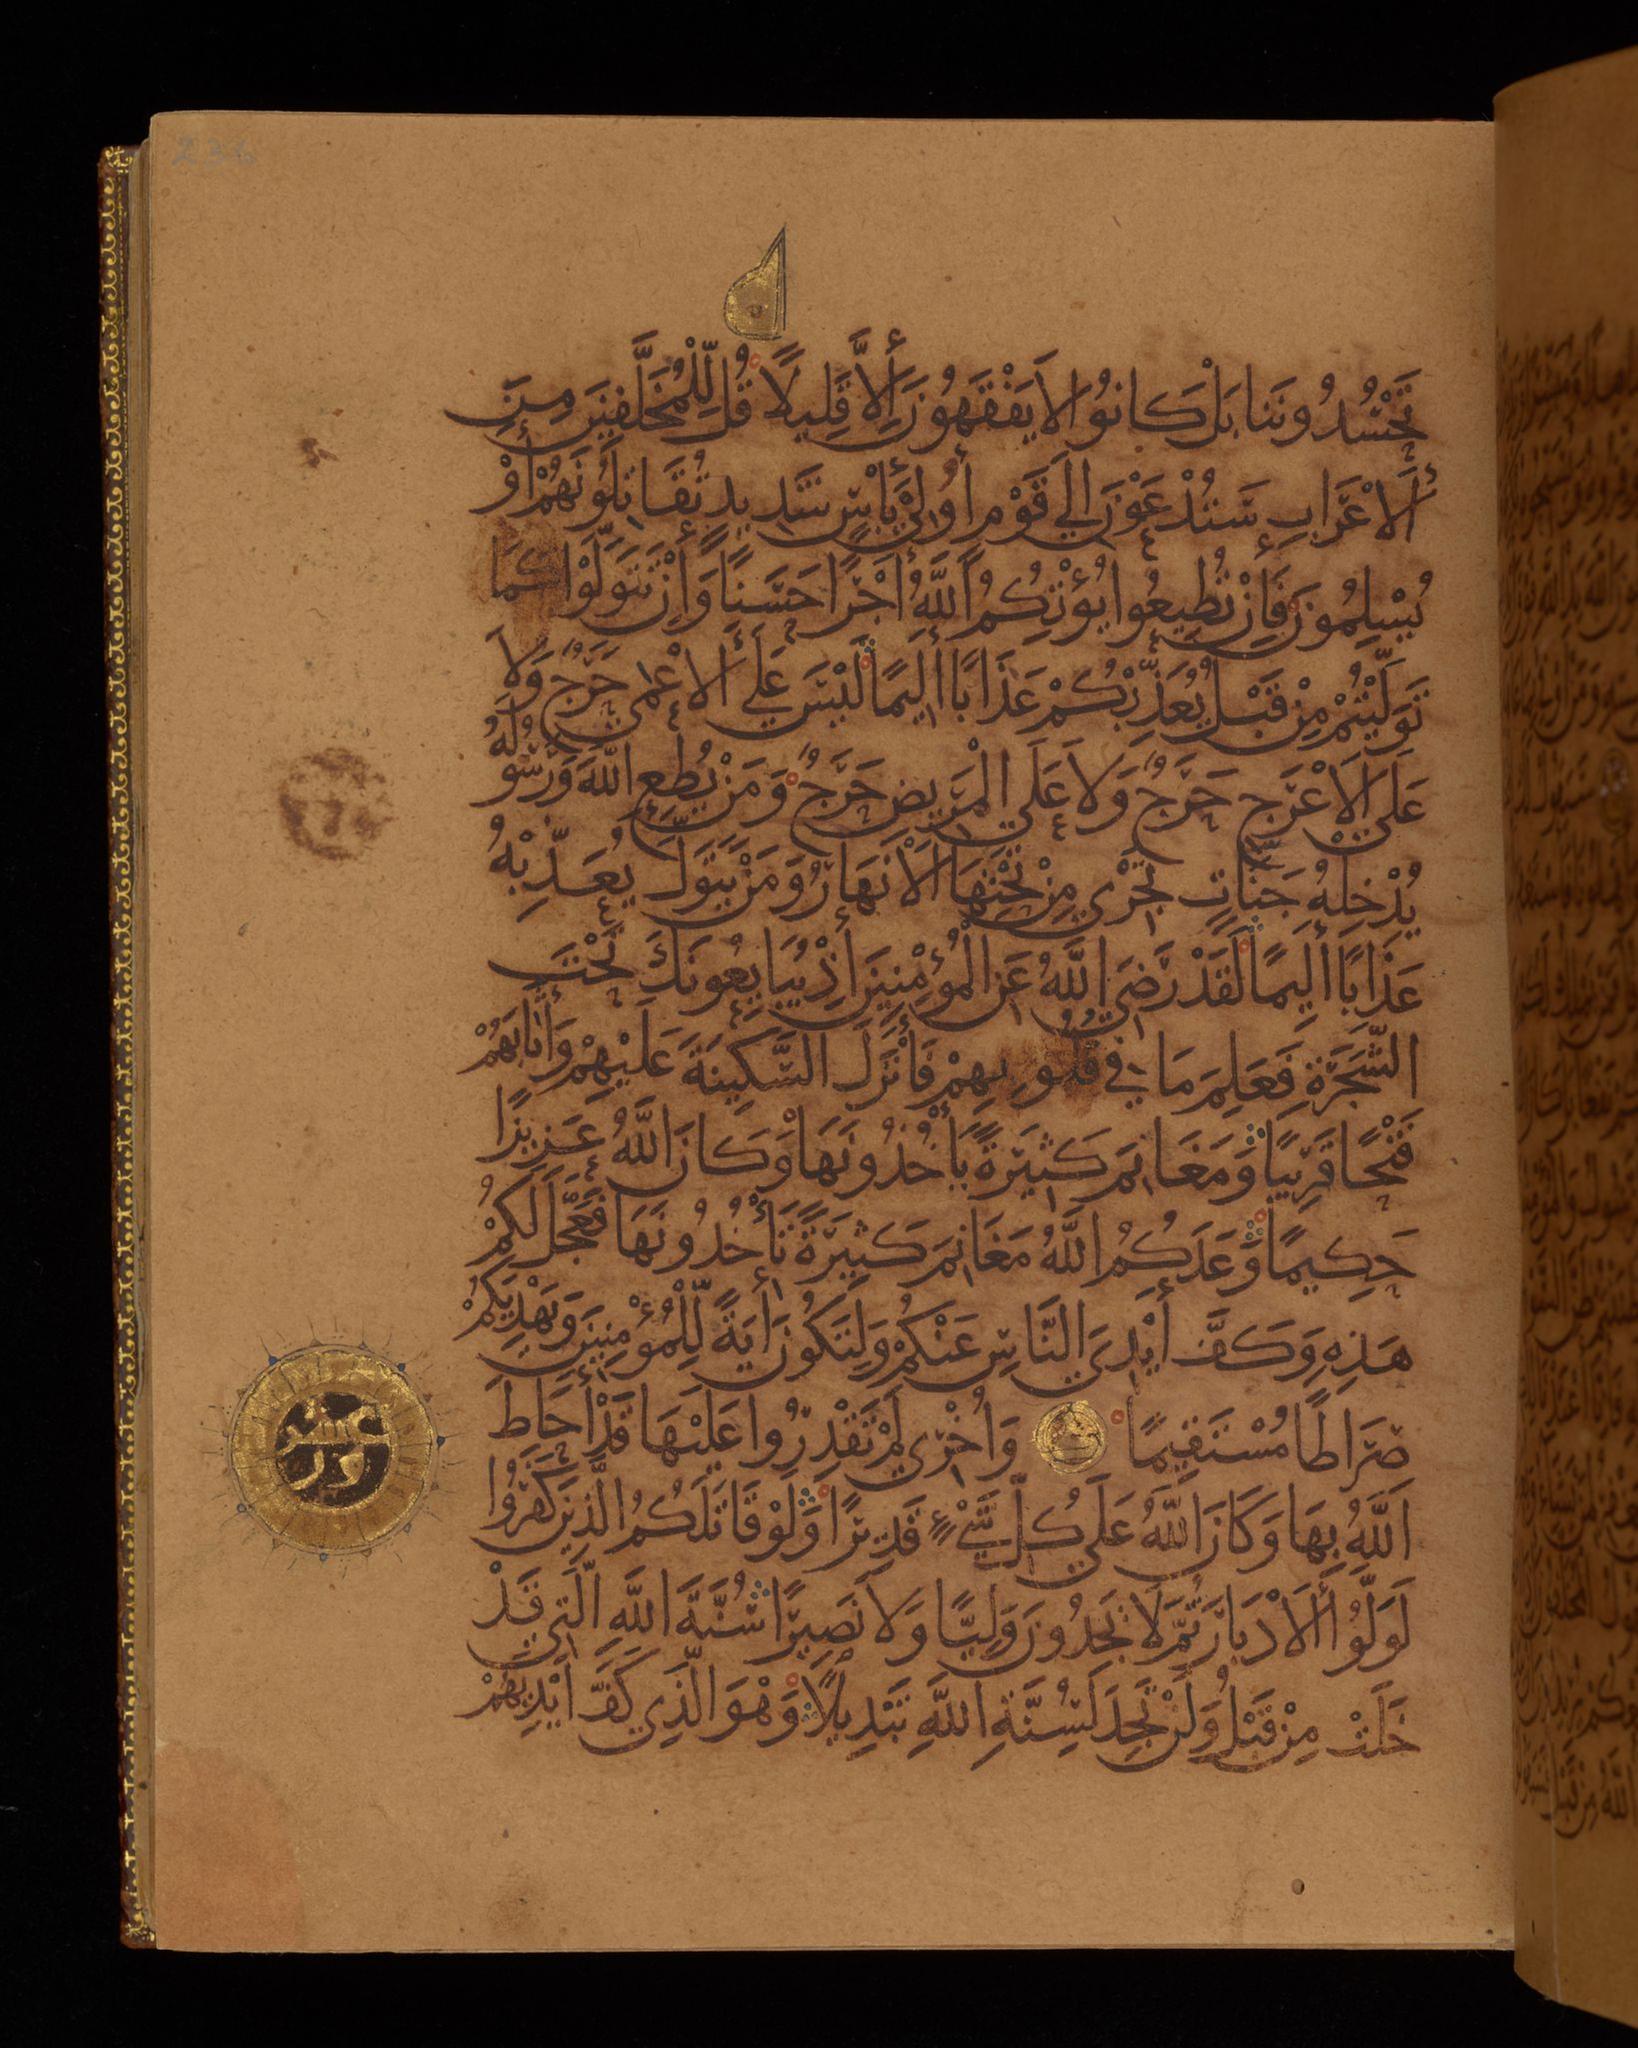 236
تَحْسُدُونَنَا بَلْ كَانُوا لَا يَفْقَهُونَ إِلَّا قَلِيلًا قُل لِّلْمُخَلَّفِينَ مِنَ
الْأَعْرَابِ سَتُدْعَوْنَ إِلَى قَوْمٍ أُولِي بَأْسٍ شَدِيدٍ تُقَاتِلُونَهُمْ أَوْ
يُسْلِمُونَ فَإِنْ تُطِيعُوا يُؤْتِكُمُ اللَّهُ أَجْرًا حَسَنًا وَإِنْ تَتَوَلَّوْا كَمَا
تَوَلَّيْتُمْ مِنْ قَبْلُ يُعَذِّبْكُمْ عَذَابًا أَلِيمًا لَيْسَ عَلَى الْأَعْمَى حَرَجٌ وَلَا
عَلَى الْأَعْرَجِ حَرَجٌ وَلَا عَلَى الْمَرِيضِ حَرَجٌ وَمَنْ يُطِعِ اللَّهَ وَرَسُولَهُ
يُدْخِلْهُ جَنَّاتٍ تَجْرِي مِنْ تَحْتِهَا الْأَنْهَارُ وَمَنْ يَتَوَلَّ يُعَذِّبْهُ
عَذَابًا أَلِيمًا لَقَدْ رَضِيَ اللَّهُ عَنِ الْمُؤْمِنِينَ إِذْ يُبَايِعُونَكَ تَحْتَ
الشَّجَرَةِ فَعَلِمَ مَا فِي قُلُوبِهِمْ فَأَنْزَلَ السَّكِينَةَ عَلَيْهِمْ وَأَثَابَهُمْ
فَتْحًا قَرِيبًا وَمَغَانِمَ كَثِيرَةً يَأْخُذُونَهَا وَكَانَ اللَّهُ عَزِيزًا
حَكِيمًا وَعَدَكُمُ اللَّهُ مَغَانِمَ كَثِيرَةً تَأْخُذُونَهَا فَعَجَّلَ لَكُمْ
هَذِهِ وَكَفَّ أَيْدِيَ النَّاسِ عَنْكُمْ وَلِتَكُونَ آيَةً لِّلْمُؤْمِنِينَ وَيَهْدِيَكُمْ
صِرَاطًا مُسْتَقِيمًا وَأُخْرَى لَمْ تَقْدِرُوا عَلَيْهَا قَدْ أَحَاطَ
اللَّهُ بِهَا وَكَانَ اللَّهُ عَلَى كُلِّ شَيْءٍ قَدِيرًا وَلَوْ قَاتَلَكُمُ الَّذِينَ كَفَرُوا
لَوَلَّوُا الْأَدْبَارَ ثُمَّ لَا يَجِدُونَ وَلِيًّا وَلَا نَصِيرًا سُنَّةَ اللَّهِ الَّتِي قَدْ
خَلَتْ مِنْ قَبْلُ وَلَنْ تَجِدَ لِسُنَّةِ اللَّهِ تَبْدِيلًا وَهُوَ الَّذِي كَفَّ أَيْدِيَهُمْ